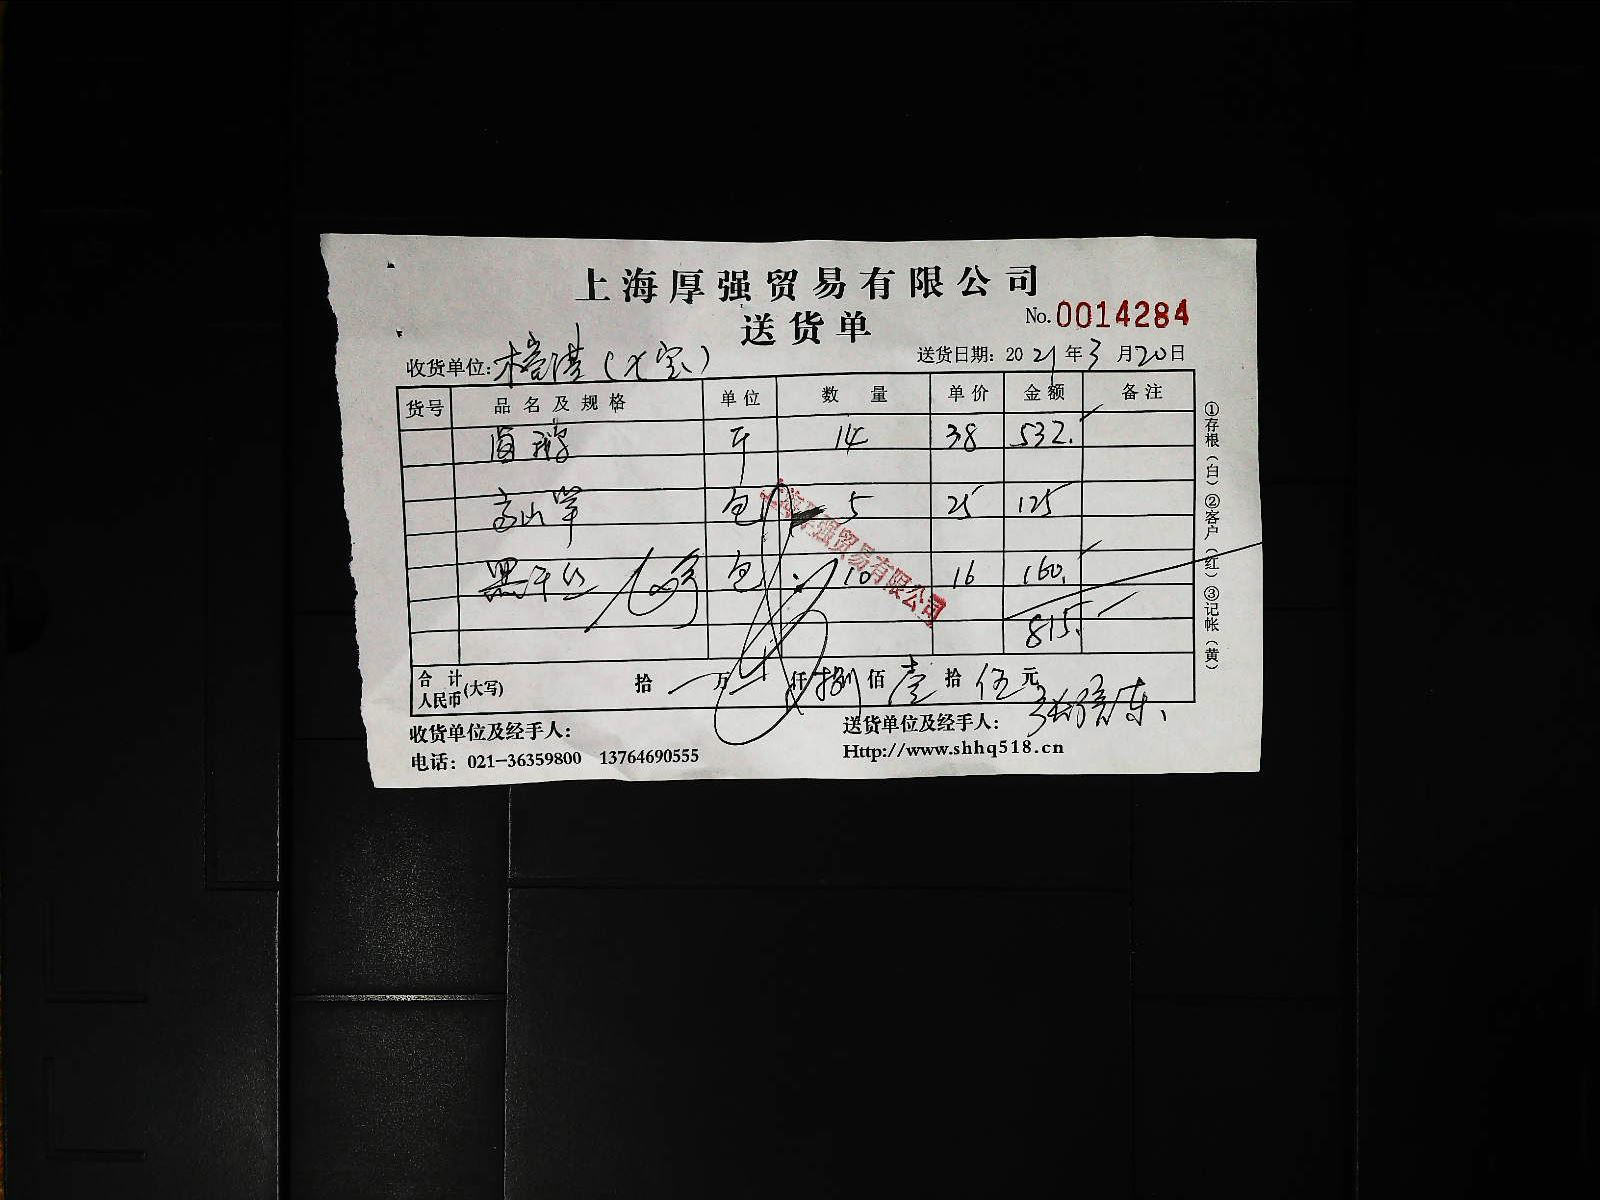 上海厚强贸易有限公司
送货单
No.0014284
收货单位: (七宝)
送货日期: 2021年3月20日
货号 品名及规格 单位 数量 单价 金额 备注
斤 14 38 532.
高山笋 包 5 25 125
黑千丝 包 10 16 160.
815.
上海厚强贸易有限公司
合计人民币(大写) 拾 万 仟 捌 佰 壹 拾 伍 元
收货单位及经手人:
送货单位及经手人:
电话: 021-36359800 13764690555
Http://www.shhq518.cn
①存根(白)②客户(红)③记帐(黄)